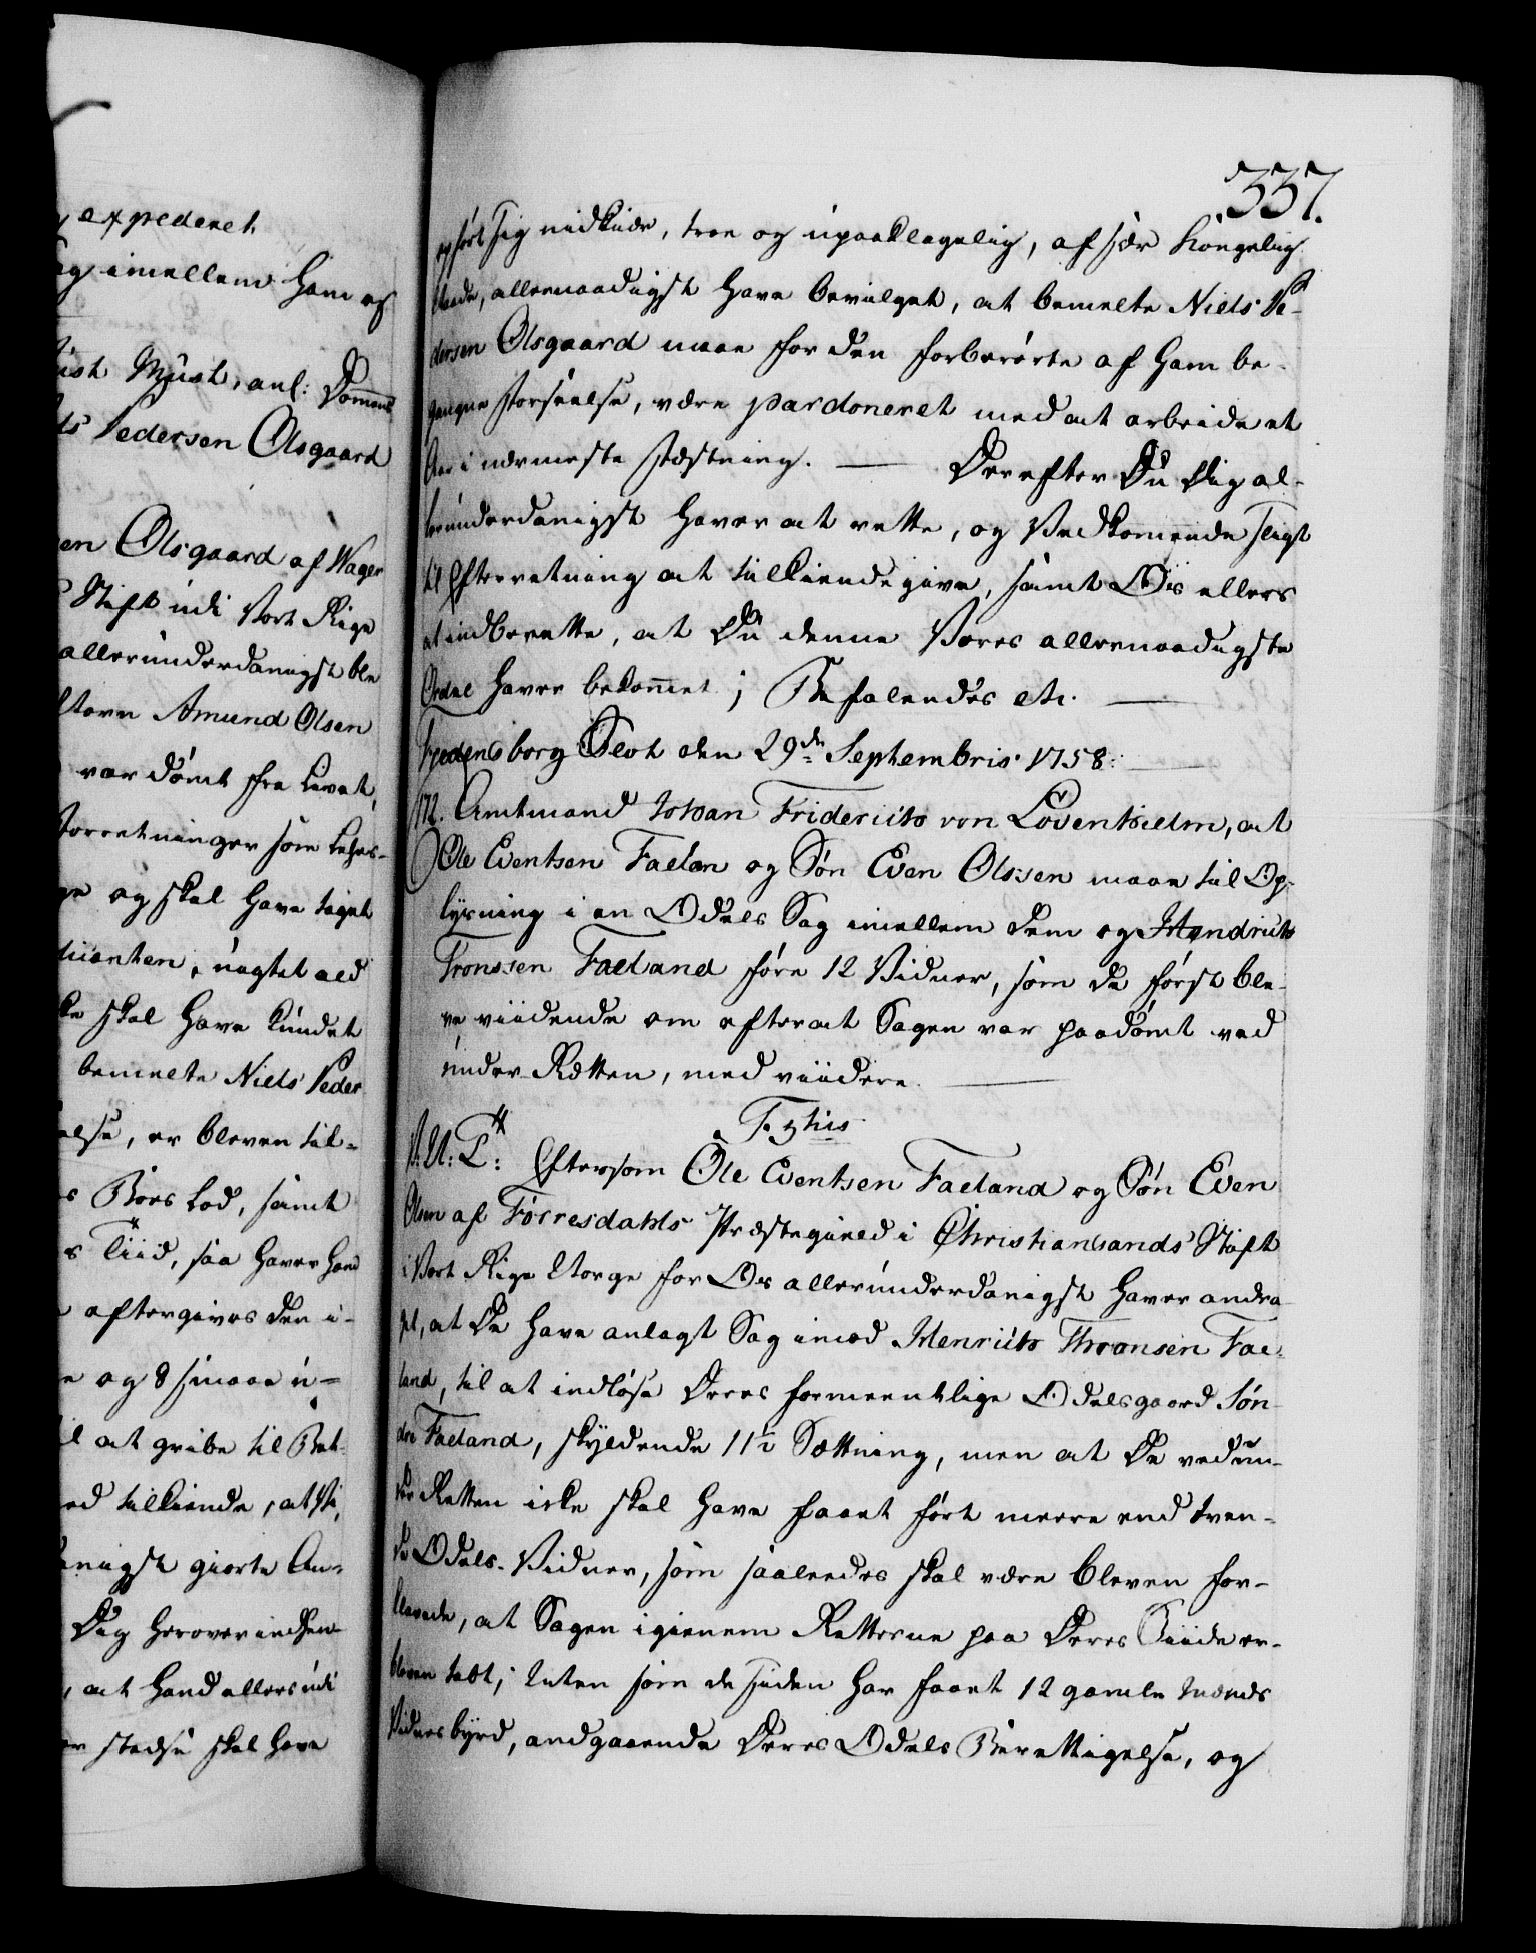 expederet.
imellem ham og
Must, anl: Dommens
Pedersen Olsgaard
Olsgaard af Wager
Stift udi Vort Rige
allerunderdanigst ble
Amund Olsen
var dømt fra Livet,
forretninger som Lehns-
og skal have taget
uagtet ald
skal have kundet
bemelte Niels Peder
else, er bleven til-
Boes Lod, samt
Tiid, saa haver hand
eftergives den i-
og 8 smaae u-
at gribe til Bet
tilkiende, at Vi,
giorte An-
Dig herover indhen-
at hand ellers udi
stedse skal have
337.
opført sig nidkier, troe og upaaklagelig, af sær Kongelig
Naade, allernaadigst have bevilget, at bemelte Niels Pe-
dersen Olsgaard maae for den forberørte af ham be-
gangne Forseelse, være pardoneret med at arbeide et
Aar i nærmeste Fæstning. — Derefter Du Dig al-
lerunderdanigst haver at rette, og Vedkommende sligt
til Efterretning at tilkiendegive, samt Os ellers
at indberette, at Du denne Vores allernaadigste
Ordre haver bekommet; Befalendes etc.
Fredensborg Slot den 29de Septembris 1758.
172. Amtmand Johan Friderich von Løvenhielm, at
Ole Eventsen Faeland og Søn Even Olssen maae til Op-
lysning i en Odels Sag imellem dem og Hendrich
Tronssen Faeland føre 12 Vidner, som de først ble-
ve viidende om efterat Sagen var paadømt ved
under-Retten, med viidere.
F. 5tus
V: G: T: Eftersom Ole Eventsen Faeland og Søn Even
Olsen af Førresdahls Præstegield i Christiansands Stift
i Vort Rige Norge for Os allerunderdanigst haver andra-
get, at De have anlagt Sag imod Henrich Thronsen Fae-
land, til at indløse Deres formeentlige Odelsgaard Søn-
dre Faeland, skyldende 11½ Sættning, men at De ved un-
der Retten icke skal have faaet ført meere end tven-
de Odels-Vidner, som saaledes skal være bleven for-
klarede, at Sagen igiennem Retterne paa Deres Siide er
bleven tabt; Men som de siden har faaet 12 gamle Mænds
Vidnesbyrd, andgaaende Deres Odels Berettigelse, og